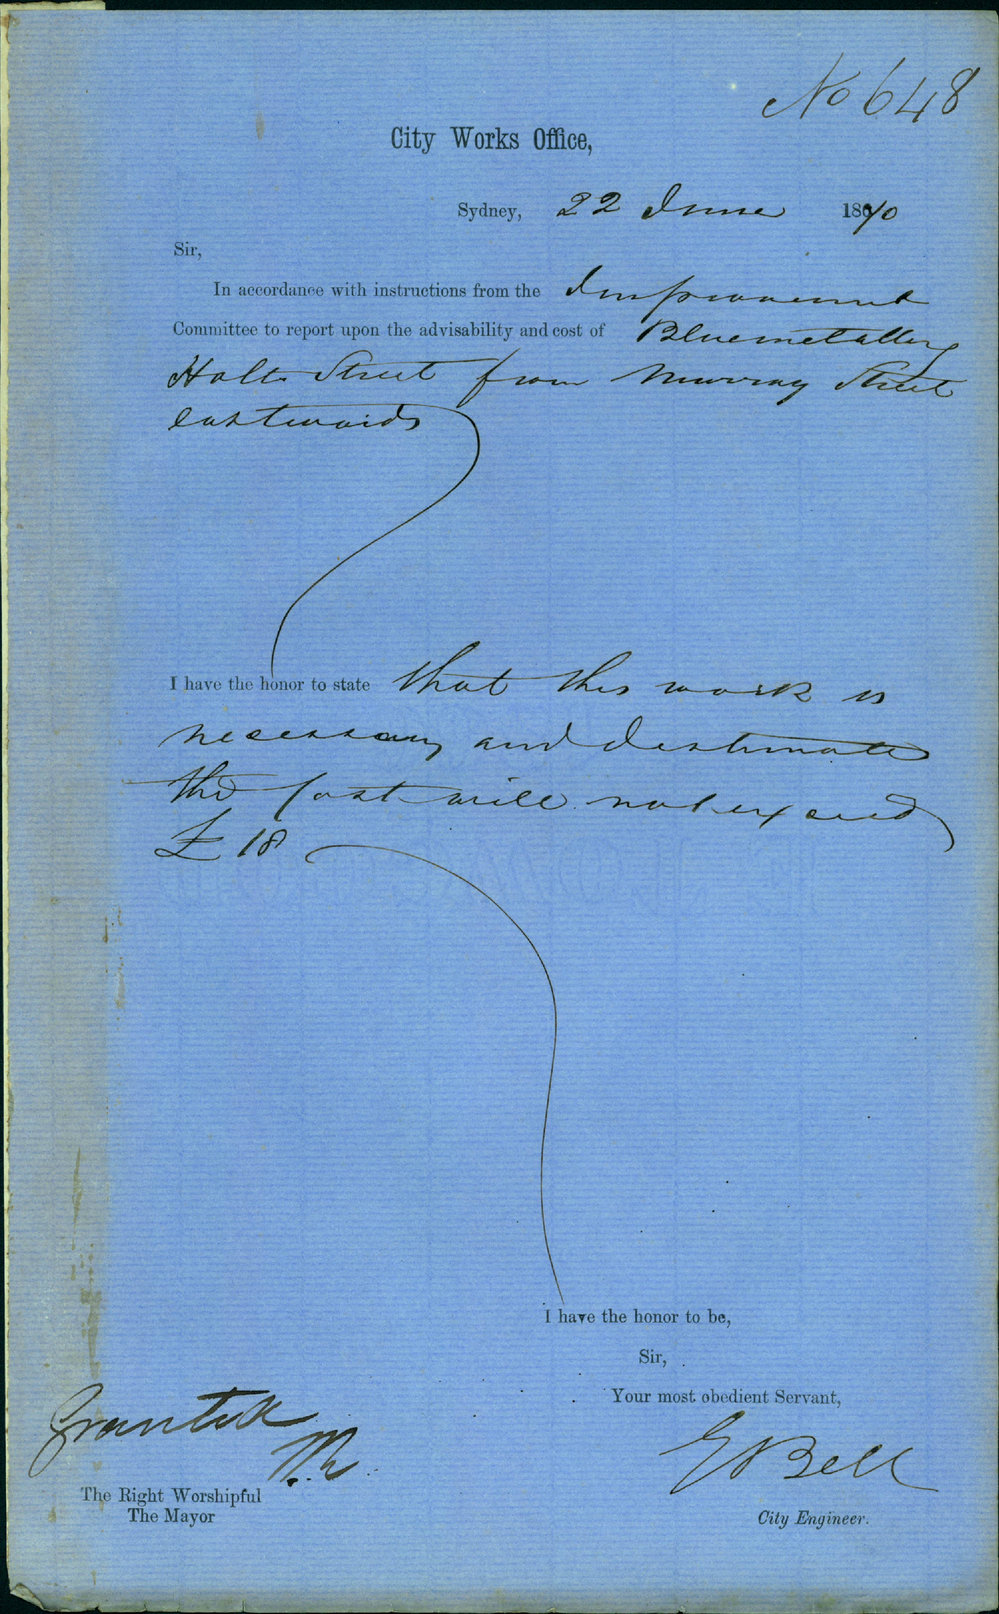 No 648
City Works Office,
Sydney, 22 June 1870
Sir,
In accordance with instructions from the Improvement
Committee to report upon the advisability and cost of Bluemetalling
Holt Street from Murray Street
eastwards
I have the honor to state that this work is
necessary and I estimate
the Cost will not exceed
£18
I have the honor to be,
Sir,
Your most obedient Servant,
Granted
EBell
The Right Worshipful
The Mayor
City Engineer.